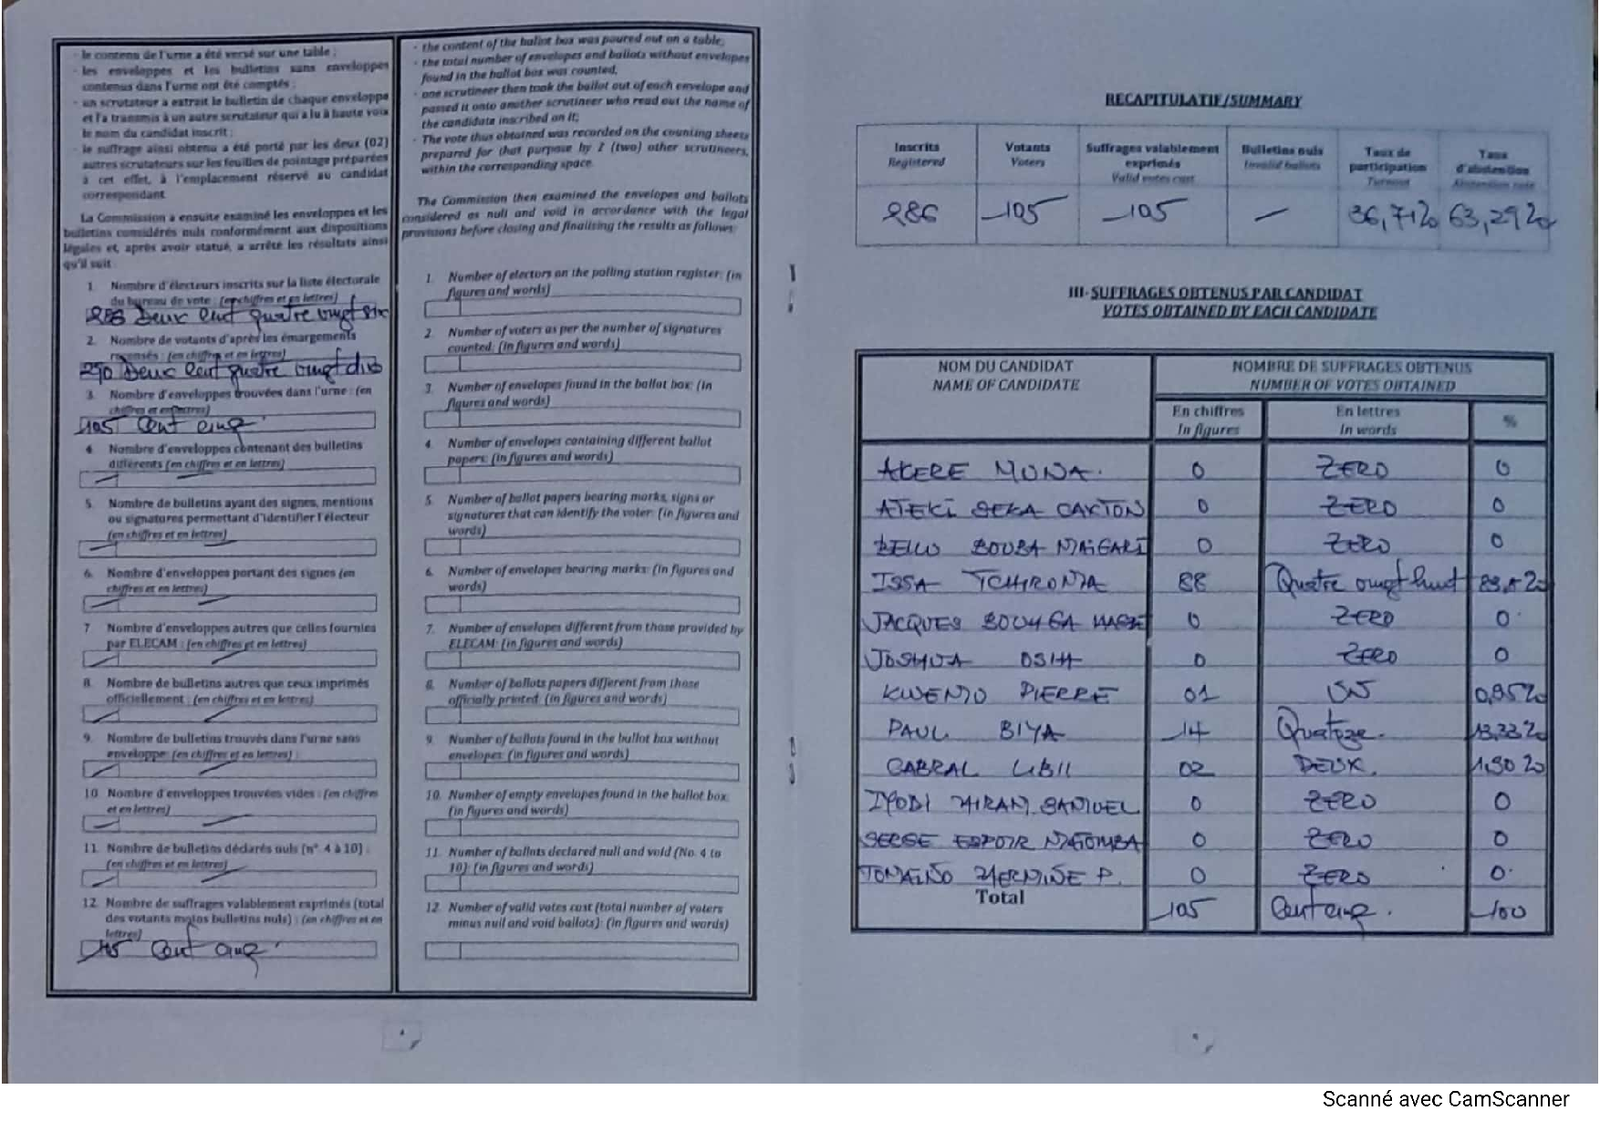 - le contenu de l'urne a été versé sur une table ;
- les enveloppes et les bulletins sans enveloppes
contenus dans l'urne ont été comptés ;
- un scrutateur a extrait le bulletin de chaque enveloppe
et l'a transmis à un autre scrutateur qui a lu à haute voix
le nom du candidat inscrit ;
- le suffrage ainsi obtenu a été porté par les deux (02)
autres scrutateurs sur les feuilles de pointage préparées
à cet effet, à l'emplacement réservé au candidat
correspondant.
La Commission a ensuite examiné les enveloppes et les
bulletins considérés nuls conformément aux dispositions
légales et, après avoir statué, a arrêté les résultats ainsi
qu'il suit :
1. Nombre d'électeurs inscrits sur la liste électorale
du bureau de vote : (en chiffres et en lettres)
286 Deux cent quatre vingt six
2. Nombre de votants d'après les émargements
recensés : (en chiffres et en lettres)
290 Deux cent quatre vingt dix
3. Nombre d'enveloppes trouvées dans l'urne : (en
chiffres et en lettres)
105 Cent cinq
4. Nombre d'enveloppes contenant des bulletins
différents (en chiffres et en lettres)
5. Nombre de bulletins ayant des signes, mentions
ou signatures permettant d'identifier l'électeur
(en chiffres et en lettres)
6. Nombre d'enveloppes portant des signes (en
chiffres et en lettres)
7 Nombre d'enveloppes autres que celles fournies
par ELECAM : (en chiffres et en lettres)
8. Nombre de bulletins autres que ceux imprimés
officiellement : (en chiffres et en lettres)
9. Nombre de bulletins trouvés dans l'urne sans
enveloppe: (en chiffres et en lettres) :
10. Nombre d'enveloppes trouvées vides : (en chiffres
et en lettres)
11. Nombre de bulletins déclarés nuls (n° 4 à 10) :
(en chiffres et en lettres)
12. Nombre de suffrages valablement exprimés (total
des votants moins bulletins nuls) : (en chiffres et en
lettres)
105 Cent cinq
- the content of the ballot box was poured out on a table,
- the total number of envelopes and ballots without envelopes
found in the ballot box was counted,
- one scrutineer then took the ballot out of each envelope and
passed it onto another scrutineer who read out the name of
the candidate inscribed on it;
- The vote thus obtained was recorded on the counting sheets
prepared for that purpose by 2 (two) other scrutineers,
within the corresponding space.
The Commission then examined the envelopes and ballots
considered as null and void in accordance with the legal
provisions before closing and finalising the results as follows:
1. Number of electors on the polling station register: (in
figures and words)
2. Number of voters as per the number of signatures
counted: (in figures and words)
3. Number of envelopes found in the ballot box: (in
figures and words)
4. Number of envelopes containing different ballot
papers: (in figures and words)
5. Number of ballot papers bearing marks, signs or
signatures that can identify the voter: (in figures and
words)
6. Number of envelopes bearing marks: (in figures and
words)
7. Number of envelopes different from those provided by
ELECAM: (in figures and words)
8. Number of ballots papers different from those
officially printed: (in figures and words)
9. Number of ballots found in the ballot box without
envelopes: (in figures and words)
10. Number of empty envelopes found in the ballot box:
(in figures and words)
11. Number of ballots declared null and void (No. 4 to
10): (in figures and words)
12. Number of valid votes cast (total number of voters
minus null and void ballots): (in figures and words)
RECAPITULATIF/SUMMARY
Inscrits Registered Votants Voters Suffrages valablement exprimés Valid votes cast Bulletins nuls Invalid ballots Taux de participation Turnout Taux d'abstention Abstention rate
286 105 105 — 36,71% 63,29%
III- SUFFRAGES OBTENUS PAR CANDIDAT
VOTES OBTAINED BY EACH CANDIDATE
NOM DU CANDIDAT NOMBRE DE SUFFRAGES OBTENUS
NAME OF CANDIDATE NUMBER OF VOTES OBTAINED
En chiffres En lettres %
In figures In words
AKERE MUNA. 0 ZERO 0
ATEKI SEKA CAXTON 0 ZERO 0
BELLO BOUBA MAIGARI 0 ZERO 0
ISSA TCHIROMA 88 Quatre vingt huit 83,8%
JACQUES BOUHGA HAGBE 0 ZERO 0
JOSHUA OSIH 0 ZERO 0
KWEMO PIERRE 01 UN 0,95%
PAUL BIYA 14 Quatoze. 13,33%
CABRAL LIBII 02 DEUX. 1,90%
IYODI HIRAM SAMUEL 0 ZERO 0
SERGE ESPOIR MATOMBA 0 ZERO 0
TOMAINO HERMINE P. 0 ZERO 0
Total 105 Cent cinq. 100
Scanné avec CamScanner